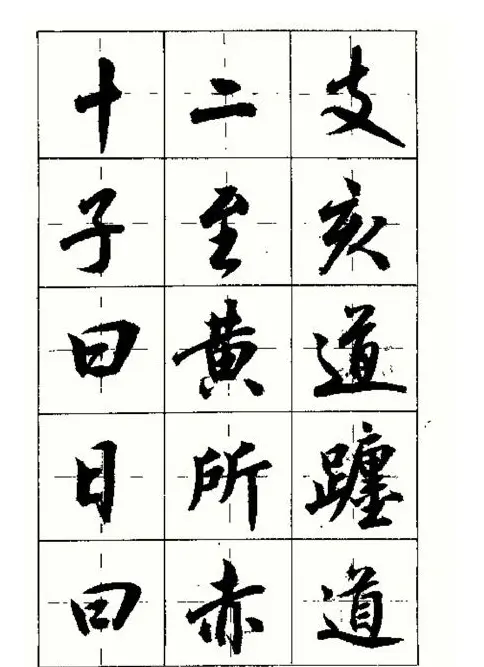 十二支
子至亥
曰黄道
日所躔
曰赤道